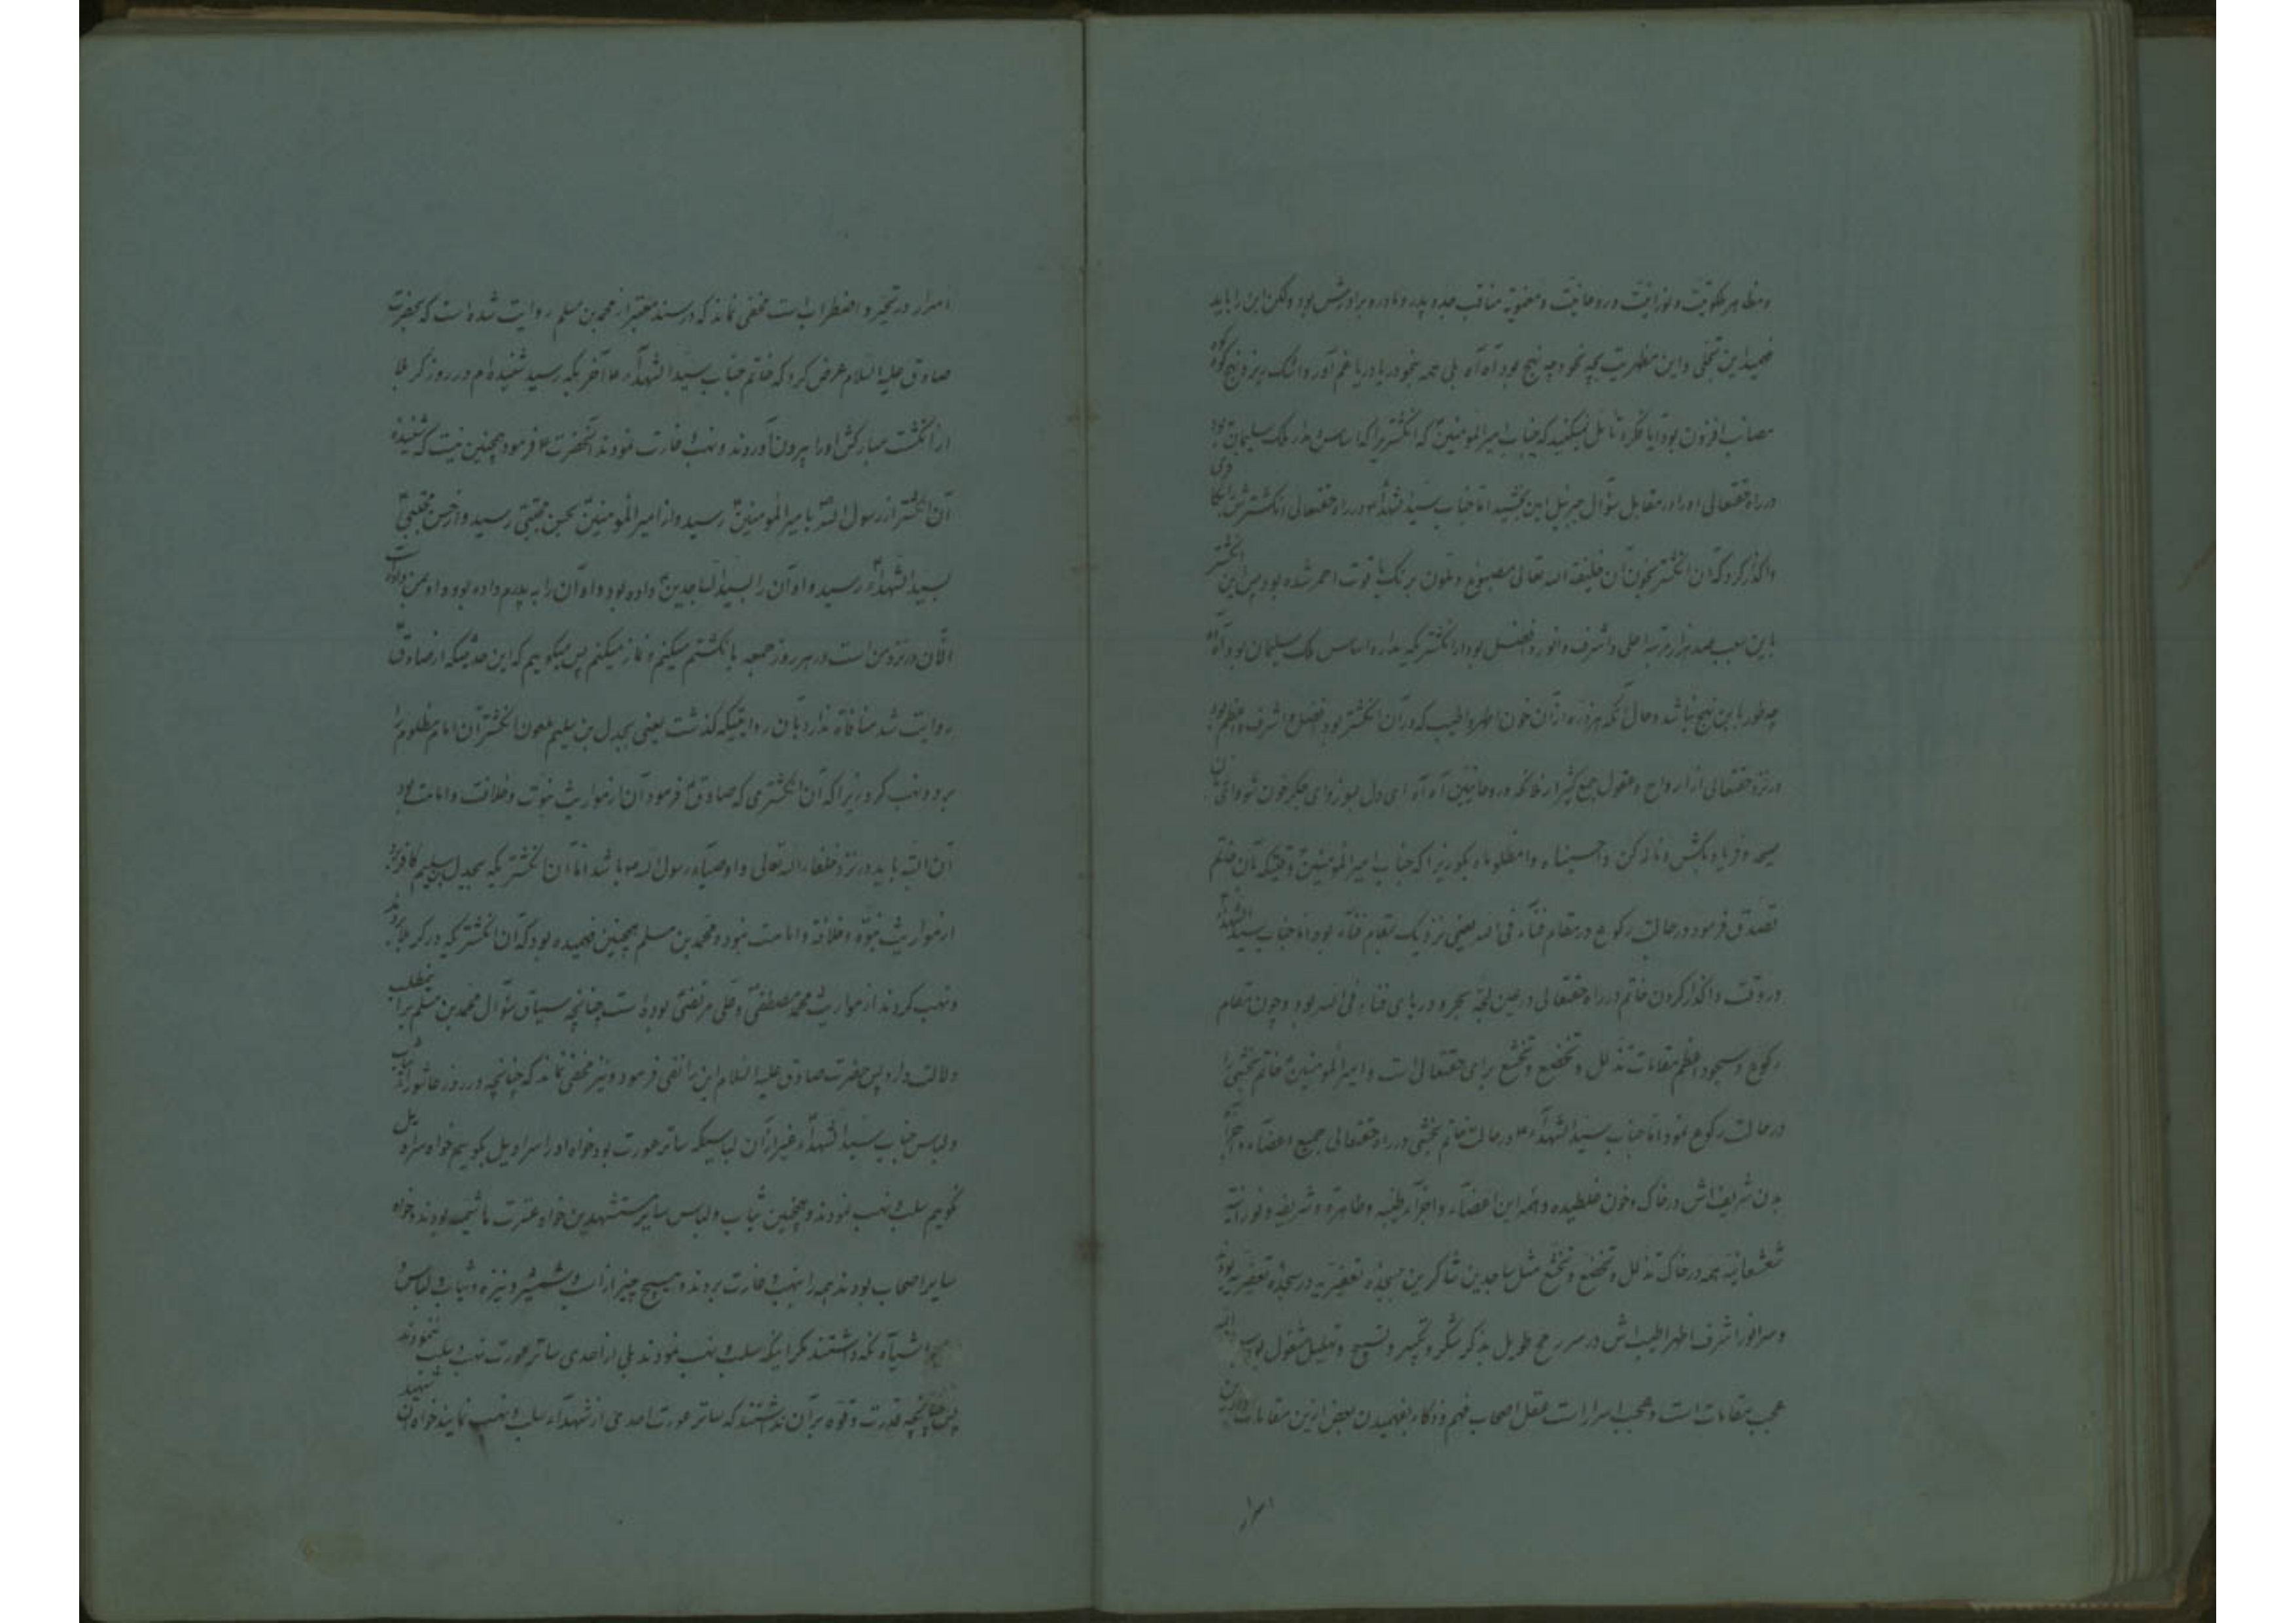 ومظاهر ملکوتیت و نورانیت و روحانیت و معنویه مناقب جد و پدر و مادر و برادرش بود ولکن این را باید
فهمید این تجلی و این مظهریت بچه نحو و چه نهج بود آه آه بلی همه نحو دریا دریا غم آور و اشک ریز و نهج کوه کوه
مصائب افزون بود آیا فکر و تأمل نمیکنید که جناب امیرالمؤمنین؏ که انگشتریرا که اساس و مدار ملک سلیمان بود
در راه حقتعالی او را در مقابل سؤال جبرئیل امین بخشید اما جناب سیدالشهدآء در راه حقتعالی انگشترش را بکا فری
واگذار کرد که آن انگشتر بخون آن خلیفة الله تعالی مصبوغ و ملون برنگ یاقوت احمر شده بود پس این انگشتر
باین سبب صد هزار مرتبه اعلی و اشرف و انور و افضل بود از انگشتریکه مدار و اساس ملک سلیمان بود آه آه
چه طور باین نهج نباشد و حال آنکه هر ذره از آن خون اطهر و اطیب که در آن انگشتر بود افضل و اشرف و اعظم بود
در نزد حقتعالی از ارواح و عقول جمع کثیر از ملائکه و روحانیین آه آه ای دل بسوز و ای جگر خون شو و ای زبان
صیحه و فریاد بکش و ناله کن و احسیناه و وامظلوماه بگو زیرا که جناب امیرالمؤمنین؏ وقتیکه بآن خاتم
تصدق فرمود در حالت رکوع در مقام فنآء فی الله یعنی نزدیک بمقام فنآء بود اما جناب سیدالشهدآء
در وقت واگذار کردن خاتم در راه حقتعالی در عین لجّه بحر و دریای فناء فی الله بود و چون مقام
رکوع و سجود اعظم مقامات تذلل و تخضع و تخشع برای حقتعالی است و امیرالمؤمنین؏ خاتم بخشی را
در حالت رکوع نمود اما جناب سیدالشهدآء؏ در حالت خاتم بخشی در راه حقتعالی جمیع اعضآء و اجزآء
بدن شریف اش در خاک و خون غلطیده و همه این اعضآء و اجزآء طیبه و طاهره و شریفه و نورانیه
شعشعانیه همه در خاک تذلل و تخضع و تخشع مثل ساجدین شاکرین بسجدۀ تعفیریه در سجدۀ تعفیریه بودند
و سر انور اشرف اطهر اطیب اش در سر رمح طویل بذکر شکر و تکبیر و تسبیح و تهلیل مشغول بود
عجب مقامات است و عجب اسرار است عقل اصحاب فهم و ذکاء بفهمیدن بعض ازین مقامات و ازین
اسرار در تحیر و اضطراب است مخفی نماند که در سند معتبر از محمد بن مسلم روایت شده است که بحضرت
صادق علیه السلام عرض کرد که خاتم جناب سیدالشهدآء؏ آخر بکه رسید شنیده ام در روز کربلا
از انگشت مبارکش او را بیرون آوردند و نهب و غارت نمودند آنحضرت؏ فرمود همچنین نیست که شنیدۀ
آن انگشتر از رسول الله؏ بامیرالمؤمنین؏ رسید و از امیرالمؤمنین؏ بحسن مجتبی رسید و از حسن مجتبی؏
بسیدالشهدآء رسید و او آن را بسیدالساجدین؏ داده بود و او آن را به پدرم داده بود و او بمن داده است
الآن در نزد من است در هر روز جمعه بانگشتم میکنم و نماز میکنم پس میگوییم که این حدیثیکه از صادق؏
روایت شد منافاة ندارد بآن روایتیکه گذشت یعنی بجدل بن سلیم ملعون انگشتر آن امام مظلوم را
برد و نهب کرد زیرا که آن انگشتری که صادق؏ فرمود آن از مواریث نبوت و خلافت و امامت بود
آن البته باید در نزد خلفاء الله تعالی و اوصیآء رسول الله؏ باشد اما آن انگشتریکه بجدل بن سلیم کافر برد
از مواریث نبوة و خلافة و امامت نبود و محمد بن مسلم همچنین فهمیده بود که آن انگشتریکه در کربلا بردند
و نهب کردند از مواریث محمد مصطفی و علی مرتضی بوده است چنانچه سیاق سؤال محمد بن مسلم براینمطلب
دلالت دارد پس حضرت صادق علیه السلام این را نفی فرمود و نیز مخفی نماند که چنانچه در روز عاشورآء ثیاب
و لباس جناب سیدالشهدآء غیر از آن لباسیکه ساتر عورت بود خواه او را سراویل بگوییم خواه سراویل
نگوییم سلب و نهب نمودند و همچنین ثیاب و لباس سایر مستشهدین خواه عترت هاشمیه بودند و خواه
سایر اصحاب بودند همه را نهب و غارت بردند و هیچ چیز از اسب و شمشیر و نیزه و ثیاب و لباس و
اشیآء نگذاشتند مگر اینکه سلب و نهب نمودند بلی از احدی ساتر عورت نهب و سلب ننمودند
پس چنانچه قدرت و قوه بر آن نداشتند که ساتر عورت احدی از شهدآء سلب و نهب نمایند خواه آن شهید